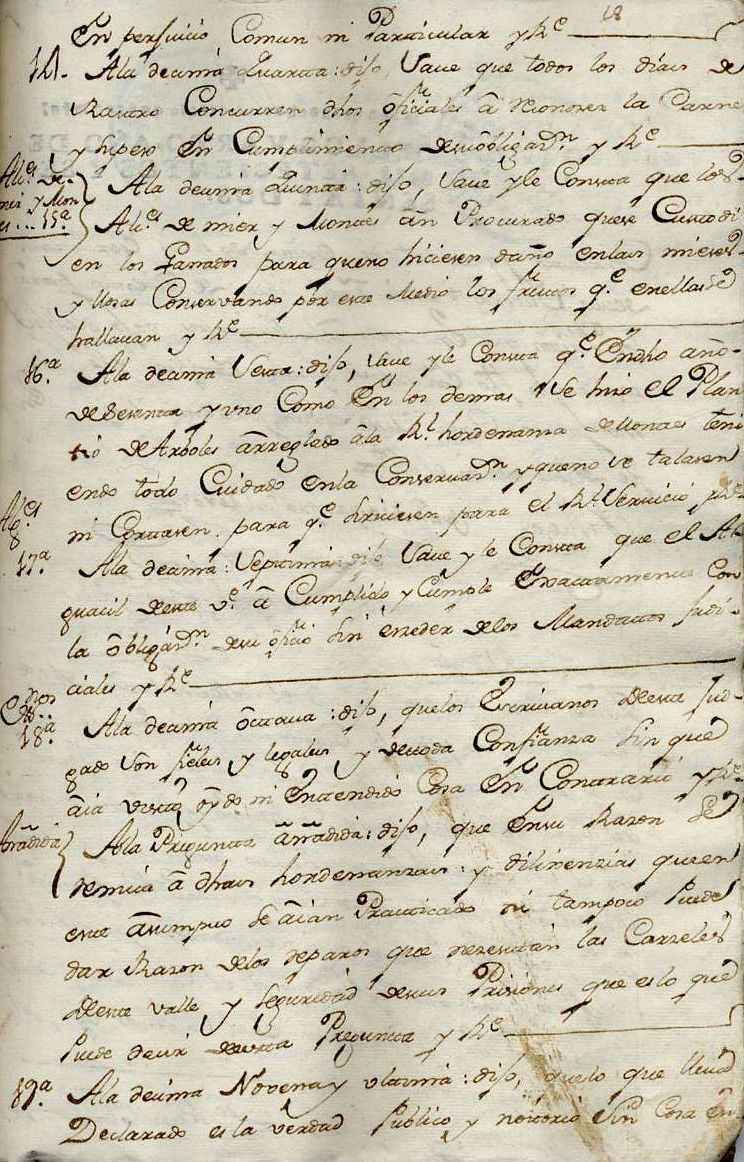 18
En perjuicio Comun ni Particular y Re
14. Ala decima quarta: dijo, Save que todos los dias de
Rastro Concurren dhos oficiales â reconocer la Carne
y hipeso En Cumplimiento desu obligazn y Re
Alces de
mier y Mon
es... 15a
Ala decima quinta: dijo, Save yle Consta que los
Alces de mier y Montes an Procurado quese Custodi
en los ganados para queno hiciesen daño enlas mieses
y llosas Conservando por este Medio los frutos qe enellas se
hallavan y Re
16.a Ala decima Sesta: dijo, Save yle Consta qe Endho año
desesenta y uno Como En los demas se hizo el Plan
tio de Arboles arreglado âla Rl hordenanza demontes teni
endo todo Cuidado enla Conservazn yqueno se talasen
ni Cortasen para qe sirviesen para el Rl Servicio y Re
17.a Ala decima Septima: dijo Save y le Consta que el Al
guacil deste Ve â Cumplido y Cumple Exactamente Con
la obligazn desu oficio sin eceder delos Mandatos Judi
ciales y Re
18.a Ala decima octava: dijo, quelos Escrivanos deeste Juz
gado son fieles y legales y detoda Confianza sin que
aia visto oydo ni Entendido Cosa En Contrario y Re
Añadida
Ala Pregunta añadida: dijo, que Ensu Razon se
remite â dhas hordenanzas y dilixenzias queen
este asumpto se aian Practicado ni tampoco Puede
dar Razon delos reparos que nezesitan las Carzeles
deeste valle y seguridad desus Prisiones que es lo que
Puede decir deesta Pregunta y Re
19.a Ala decima Novena y ultima: dijo, quelo que lleva
Declarado es la verdad Publico y notorio sin Cosa en